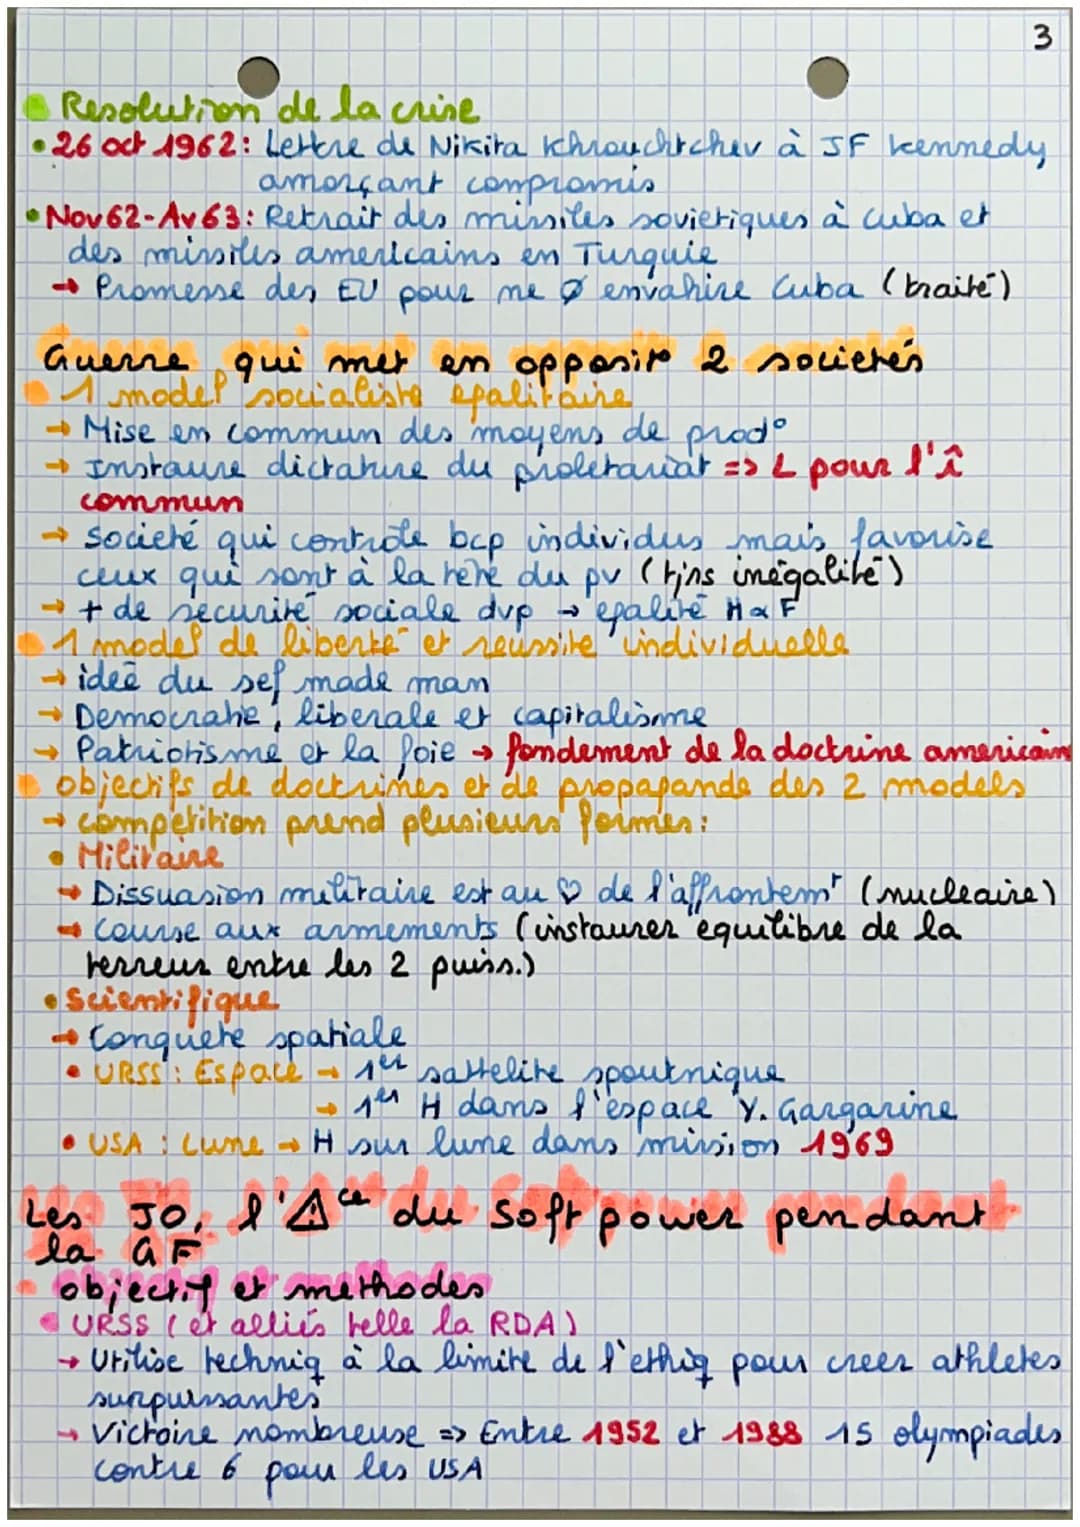 3
Resolution de la crise
• 26 oct 1962: Lettre de Nikita Khrouchtchev à JF Kennedy
amorçant compromis
• Nov 62-Av 63: Retrait des missiles sovietiques à Cuba et
des missiles americains en Turquie
→ Promesse des EU pour ne Ø envahire Cuba (traité)
Guerre qui met en opposit° 2 societés
1 model socialiste egalitaire
→ Mise en commun des moyens de prod°
→ Instaure dictature du proletariat => L pour l'î
commun
→ societé qui controle bcp individus mais favorise
ceux qui sont à la tête du pv (tjrs inégalité)
→ + de securité sociale dvp → egalité H & F
1 model de liberté et reussite individuelle
→ ideé du sef made man
→ Democratie, liberale et capitalisme
→ Patriotisme et la foie → fondement de la doctrine americain
objectifs de doctrines et de propagande des 2 models
→ competition prend plusieurs formes:
• Militaire
→ Dissuasion militaire est au ♡ de l'affrontemt (nucleaire)
→ Course aux armements (instaurer equilibre de la
terreur entre les 2 puiss.)
• Scientifique
→ Conquete spatiale
• URSS : Espace → 1er sattelite spoutnique
→ 1er H dans l'espace Y. Gargarine
• USA : Lune → H sur lune dans mission 1969
Les JO, l'⚠ce du Soft power pendant
la GF
objectif et methodes
• URSS (et alliés telle la RDA)
→ Utilise techniq à la limite de l'ethiq pour creer athletes
surpuissantes
→ Victoire nombreuse => Entre 1952 et 1988 15 olympiades
contre 6 pour les USA